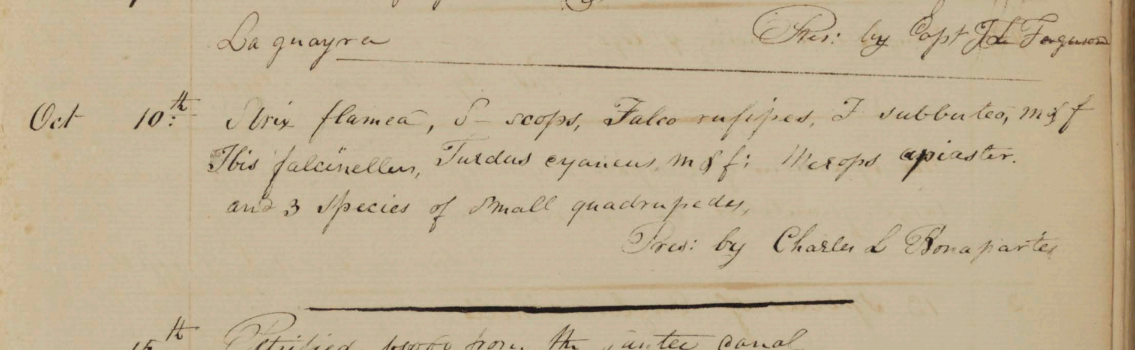 La guayra
Pres: by Capt J L Ferguson
Oct 10th: Strix flamea, S– scops, Falco rufipes, F subbuteo, m & f
Ibis falcinellus, Turdus cyaneus, m & f: Merops apiaster.
and 3 Species of Small quadrupedes,
Pres: by Charles L Bonaparte
15th Petrified wood from the santee canal